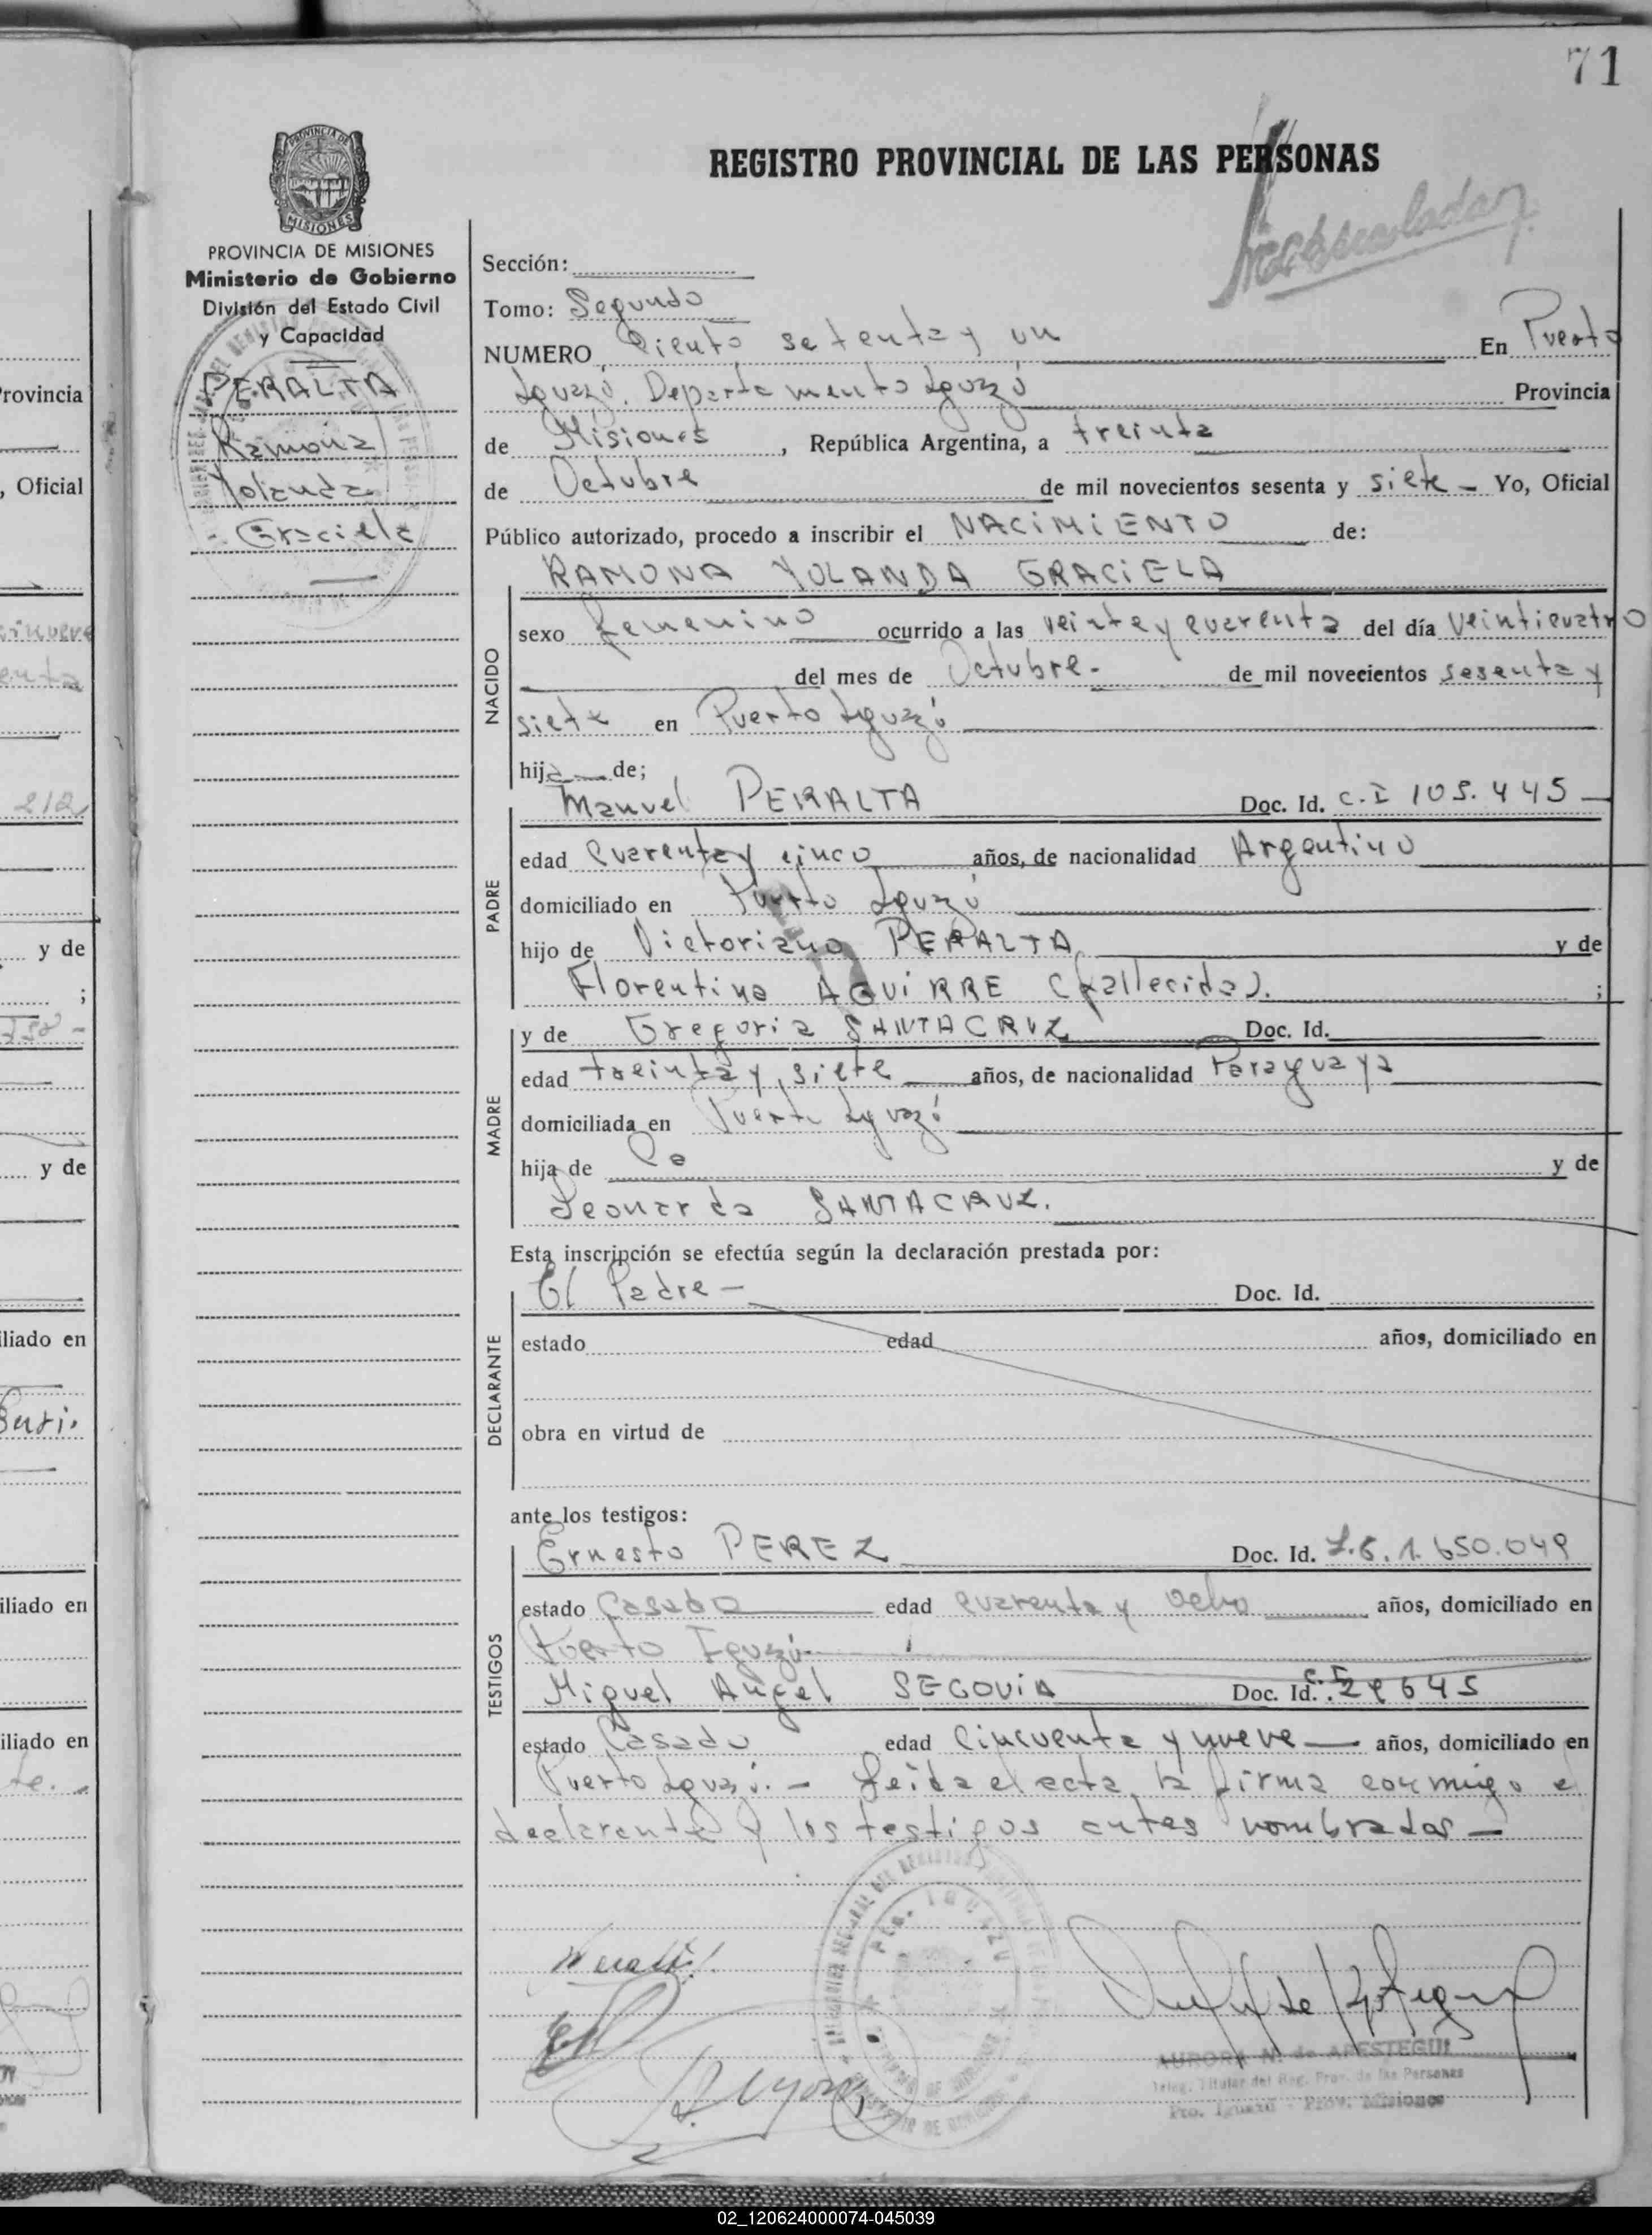 71
REGISTRO PROVINCIAL DE LAS PERSONAS
PROVINCIA DE MISIONES
PROVINCIA DE MISIONES
Ministerio de Gobierno
División del Estado Civil
y Capacidad
PERALTA
Ramona
Yolanda
- Graciela
Sección:
Tomo: Segundo
NUMERO Ciento setenta y un En Puerto
Iguazú. Departamento Iguazú Provincia
de Misiones, República Argentina, a treinta
de Octubre de mil novecientos sesenta y siete - Yo, Oficial
Público autorizado, procedo a inscribir el NACIMIENTO de:
RAMONA YOLANDA GRACIELA
NACIDO
sexo femenino ocurrido a las veinte y cuarenta del día veinticuatro
del mes de Octubre.- de mil novecientos sesenta y
siete en Puerto Iguazú
hija de;
PADRE
Manuel PERALTA Doc. Id. C.I 105.445
edad cuarenta y cinco años, de nacionalidad Argentino
domiciliado en Puerto Iguazú
hijo de Victoriano PERALTA y de
Florentina AGUIRRE (fallecida). ;
MADRE
y de Gregoria SANTACRUZ Doc. Id.
edad treinta y siete años, de nacionalidad Paraguaya
domiciliada en Puerto Iguazú
hija de y de
Leonarda SANTACRUZ.
Esta inscripción se efectúa según la declaración prestada por:
DECLARANTE
El Padre - Doc. Id.
estado edad años, domiciliado en
obra en virtud de
ante los testigos:
TESTIGOS
Ernesto PEREZ Doc. Id. 1.650.049
estado Casado edad cuarenta y ocho años, domiciliado en
Puerto Iguazú
Miguel Angel SEGOVIA Doc. Id. C.I
estado Casado edad Cincuenta y nueve años, domiciliado en
Puerto Iguazú. - Leída el acta la firma conmigo el
declarante y los testigos antes nombrados -
AURORA N. de ARESTEGUI
Titular del Reg. Prov. de las Personas
Pto. Iguazú - Prov. Misiones
rovincia
, Oficial
212
y de
;
y de
iliado en
iliado en
iliado en
02_120624000074-045039